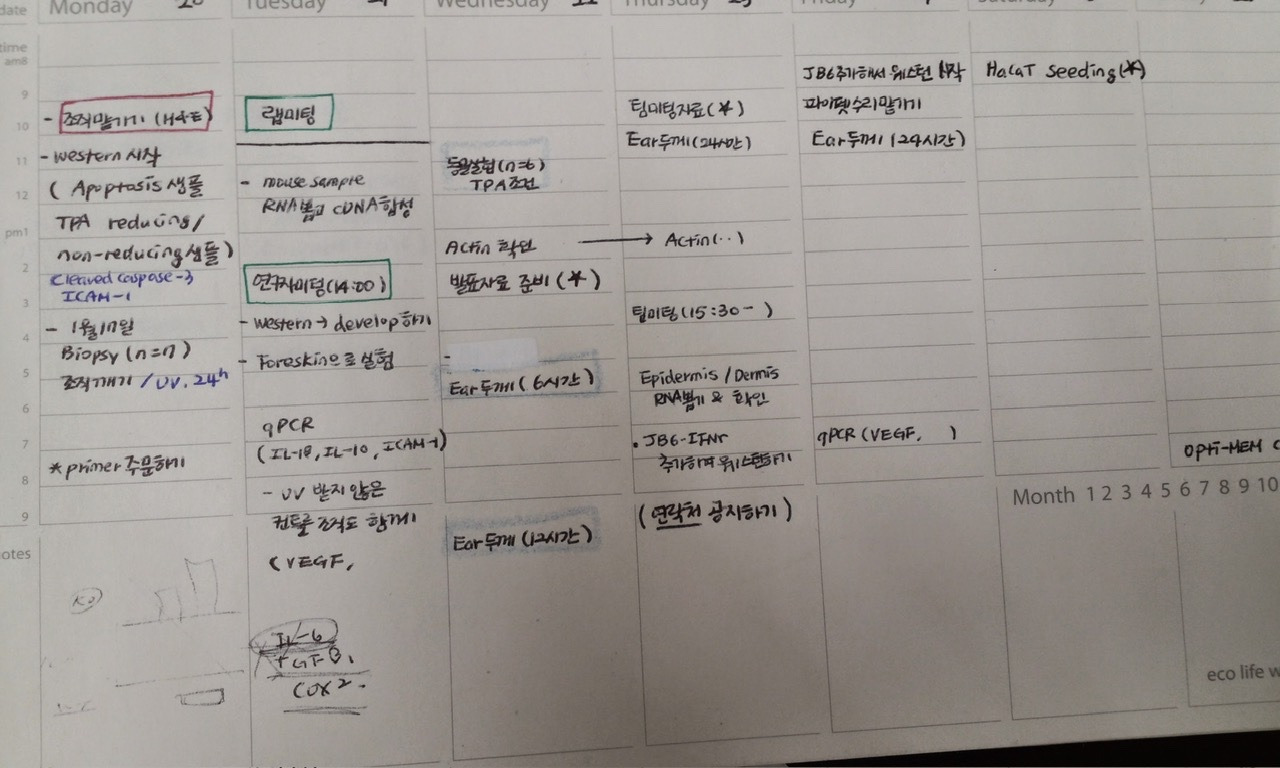 date
Monday 20
Tuesday 21
Wednesday 22
Thursday 23
Friday
Saturday
time
am8
9
10
11
12
pm1
2
3
4
5
6
7
8
9
notes
- 조직맡기기 (H&E)
- western 시작
( Apoptosis 샘플
TPA reducing /
non-reducing 샘플 )
Cleaved caspase-3
ICAM-1
- 1월17일
Biopsy (n=7)
조직깨기 / UV. 24h
* primer 주문하기
랩미팅
- mouse sample
RNA뽑고 cDNA합성
연구자미팅(14:00)
- western → develop하기
- Foreskin으로 실험
qPCR
(IL-18, IL-10, ICAM-1)
- UV 받지 않은
컨트롤 조직도 함께!
(VEGF,
IL-6
TGF-β,
COX2.
동물실험(n=6)
TPA조건
Actin 확인 →
발표자료 준비 (*)
-
Ear두께 (6시간)
Ear두께 (12시간)
팀미팅자료 (*)
Ear두께 (24시간)
Actin(..)
팀미팅(15:30- )
Epidermis / Dermis
RNA뽑기 & 확인
. JB6-IFNr
추가하여 웨스턴하기
(연락처 공지하기)
JB6추가해서 웨스턴 시작
파이펫수리맡기기
Ear두께 (24시간)
qPCR (VEGF, )
HaCaT Seeding (*)
opti-MEM
Month 1 2 3 4 5 6 7 8 9 10
eco life